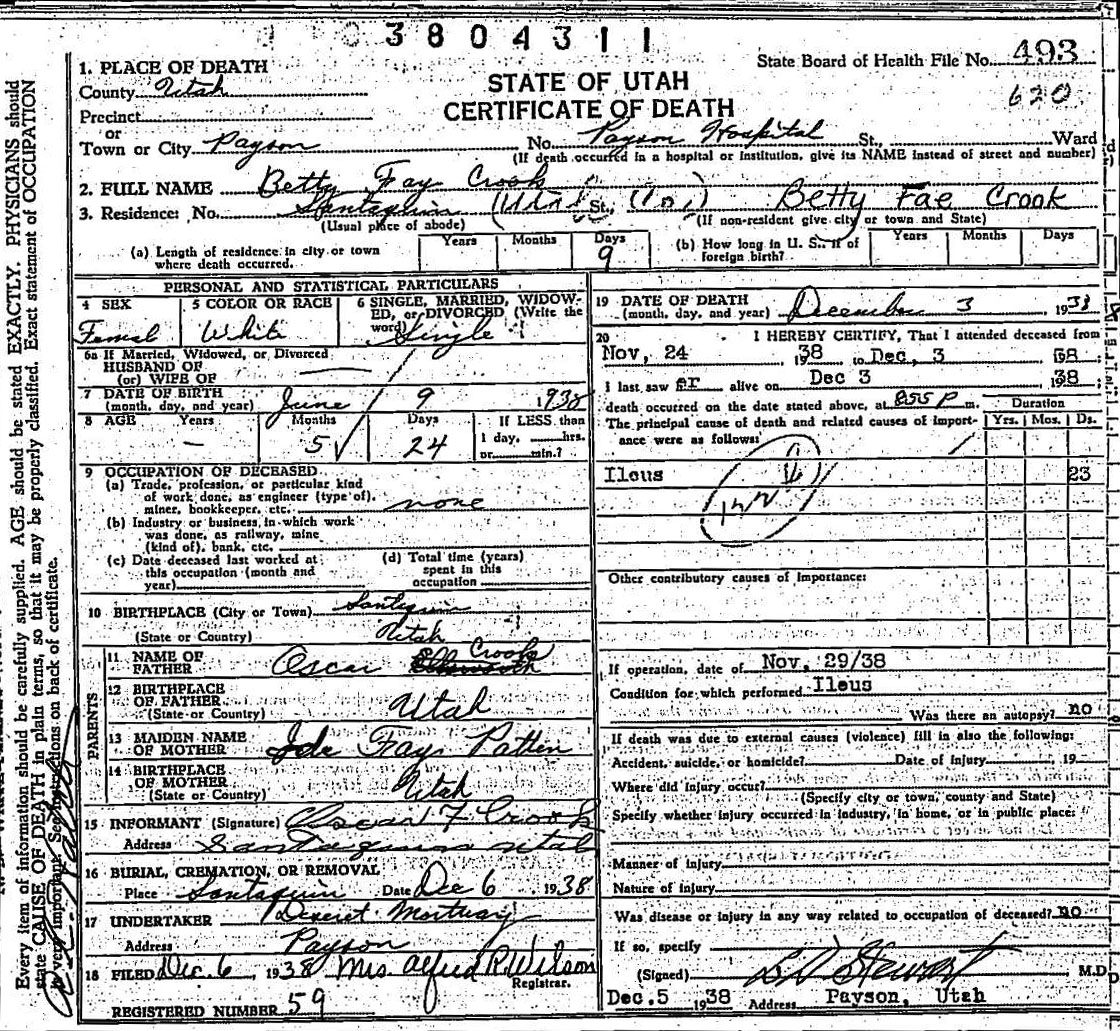 3804311
State Board of Health File No. 493
620
STATE OF UTAH
CERTIFICATE OF DEATH
1. PLACE OF DEATH
County Utah
Precinct
or
Town or City Payson No. Payson Hospital St., Ward
(If death occurred in a hospital or institution, give its NAME instead of street and number)
2. FULL NAME Betty Fay Crook
3. Residence: No. Santaquin (Utah) St., Betty Fae Crook
(Usual place of abode) (If non-resident give city or town and State)
(a) Length of residence in city or town where death occurred. Years Months Days 9
(b) How long in U. S., if of foreign birth? Years Months Days
PERSONAL AND STATISTICAL PARTICULARS
4 SEX Femal
5 COLOR OR RACE White
6 SINGLE, MARRIED, WIDOWED, or DIVORCED (Write the word) Single
6a If Married, Widowed, or Divorced
HUSBAND OF
(or) WIFE OF
7 DATE OF BIRTH
(month, day, and year) June 9 1938
8 AGE Years – Months 5 Days 24 If LESS than
1 day, hrs.
or min.?
9 OCCUPATION OF DECEASED
(a) Trade, profession, or particular kind
of work done, as engineer (type of),
miner, bookkeeper, etc. none
(b) Industry or business in which work
was done, as railway, mine
(kind of), bank, etc.
(c) Date deceased last worked at
this occupation (month and
year)
(d) Total time (years)
spent in this
occupation
10 BIRTHPLACE (City or Town) Santaquin
(State or Country) Utah
PARENTS
11 NAME OF
FATHER Oscar Crook
12 BIRTHPLACE
OF FATHER
(State or Country) Utah
13 MAIDEN NAME
OF MOTHER Ida Fay Patten
14 BIRTHPLACE
OF MOTHER
(State or Country) Utah
15 INFORMANT (Signature) Oscar F Crook
Address Santaquin Utah
16 BURIAL, CREMATION, OR REMOVAL
Place Santaquin Date Dec 6 1938
17 UNDERTAKER Deseret Mortuary
Address Payson
18 FILED Dec. 6, 1938 Mrs. Alfred R. Wilson
Registrar.
REGISTERED NUMBER 59
19 DATE OF DEATH
(month, day, and year) December 3 1938
20 I HEREBY CERTIFY, That I attended deceased from
Nov, 24 1938 to Dec, 3 38
I last saw er alive on Dec 3 1938
death occurred on the date stated above, at 855 P m.
The principal cause of death and related causes of importance were as follows:
Duration
Yrs. Mos. Ds.
Ileus 23
Other contributory causes of importance:
If operation, date of Nov, 29/38
Condition for which performed Ileus
Was there an autopsy? no
If death was due to external causes (violence) fill in also the following:
Accident, suicide, or homicide? Date of injury 19
Where did injury occur?
(Specify city or town, county and State)
Specify whether injury occurred in industry, in home, or in public place:
Manner of injury
Nature of injury
Was disease or injury in any way related to occupation of deceased? no
If so, specify
(Signed) Stewart M.D.
Dec. 5 1938 Address Payson, Utah
Every item of information should be carefully supplied. AGE should be stated EXACTLY. PHYSICIANS should
state CAUSE OF DEATH in plain terms, so that it may be properly classified. Exact statement of OCCUPATION
is very important. See instructions on back of certificate.